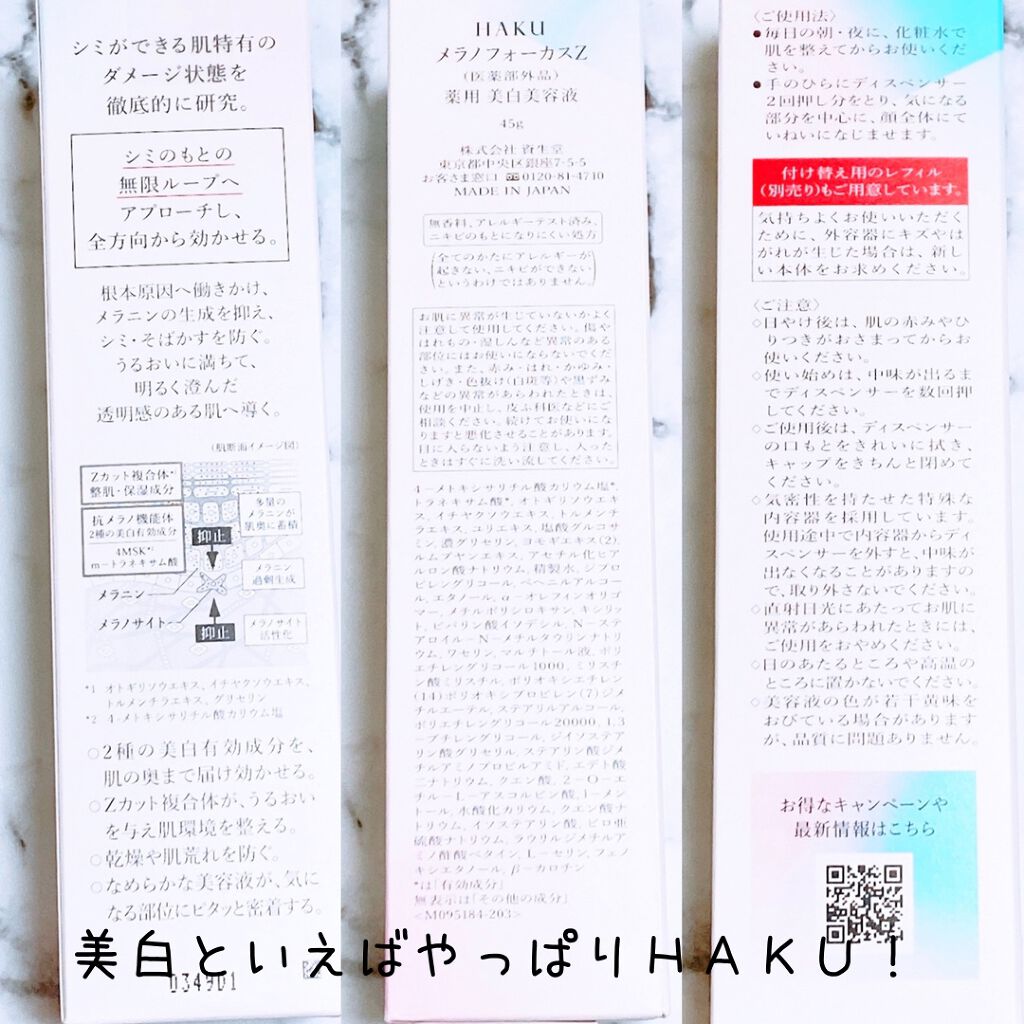 シミができる肌特有の
ダメージ状態を
徹底的に研究。
シミのもとの
無限ループへ
アプローチし、
全方向から効かせる。
根本原因へ働きかけ、
メラニンの生成を抑え、
シミ・そばかすを防ぐ。
うるおいに満ちて、
明るく澄んだ
透明感のある肌へ導く。
(肌断面イメージ図)
Zカット複合体*
整肌・保湿成分
抗メラノ機能体
2種の美白有効成分
4MSK*²
m-トラネキサム酸
多量の
メラニンが
肌奥に蓄積
抑止
メラニン
過剰生成
メラニン
メラノサイト
抑止
メラノサイト
活性化
*1 オトギリソウエキス、イチヤクソウエキス、
トルメンチラエキス、グリセリン
*2 4-メトキシサリチル酸カリウム塩
○2種の美白有効成分を、
肌の奥まで届け効かせる。
○Zカット複合体が、うるおい
を与え肌環境を整える。
○乾燥や肌荒れを防ぐ。
○なめらかな美容液が、気に
なる部位にピタッと密着する。
0349D1
HAKU
メラノフォーカスZ
(医薬部外品)
薬用 美白美容液
45g
株式会社 資生堂
東京都中央区銀座7-5-5
お客さま窓口 0120-81-4710
MADE IN JAPAN
無香料、アレルギーテスト済み、
ニキビのもとになりにくい処方
(全てのかたにアレルギーが
起きない、ニキビができない
というわけではありません。)
お肌に異常が生じていないかよく
注意して使用してください。傷や
はれもの・湿しんなど異常のある
部位にはお使いにならないでくだ
さい。また、赤み・はれ・かゆみ・
しげき・色抜け(白斑等)や黒ずみ
などの異常があらわれたときは、
使用を中止し、皮ふ科医などにご
相談ください。続けてお使いにな
りますと悪化することがあります。
目に入らないよう注意し、入った
ときはすぐに洗い流してください。
4-メトキシサリチル酸カリウム塩*,
トラネキサム酸*, オトギリソウエキ
ス, イチヤクソウエキス, トルメンチ
ラエキス, ユリエキス, 塩酸グルコサ
ミン, 濃グリセリン, ヨモギエキス(2),
ルムプヤンエキス, アセチル化ヒア
ルロン酸ナトリウム, 精製水, ジプロ
ピレングリコール, ベヘニルアルコー
ル, エタノール, α-オレフィンオリゴ
マー, メチルポリシロキサン, キシリッ
ト, ピバリン酸イソデシル, N-ステ
アロイル-N-メチルタウリンナトリ
ウム, ワセリン, マルチトール液, ポリ
エチレングリコール1000, ミリスチ
ン酸ミリスチル, ポリオキシエチレン
(14)ポリオキシプロピレン(7)ジメ
チルエーテル, ステアリルアルコール,
ポリエチレングリコール20000, 1,3
-ブチレングリコール, ジイソステア
リン酸グリセリル, ステアリン酸ジメ
チルアミノプロピルアミド, エデト酸
二ナトリウム, クエン酸, 2-O-エ
チル-L-アスコルビン酸, l-メント
ール, 水酸化カリウム, クエン酸ナ
トリウム, イソステアリン酸, ピロ亜
硫酸ナトリウム, ラウリルジメチルア
ミノ酢酸ベタイン, L-セリン, フェノ
キシエタノール, β-カロチン
*は「有効成分」
無表示は「その他の成分」
<M095184-203>
〈ご使用法〉
●毎日の朝・夜に、化粧水で
肌を整えてからお使いくだ
さい。
●手のひらにディスペンサー
2回押し分をとり、気になる
部分を中心に、顔全体にて
いねいになじませます。
付け替え用のレフィル
(別売り)もご用意しています。
気持ちよくお使いいただく
ために、外容器にキズやは
がれが生じた場合は、新し
い本体をお求めください。
〈ご注意〉
◇日やけ後は、肌の赤みやひ
りつきがおさまってからお
使いください。
◇使い始めは、中味が出るま
でディスペンサーを数回押
してください。
◇ご使用後は、ディスペンサー
の口もとをきれいに拭き、
キャップをきちんと閉めて
ください。
◇気密性を持たせた特殊な
内容器を採用しています。
使用途中で内容器からディ
スペンサーを外すと、中味が
出なくなることがありますの
で、取り外さないでください。
◇直射日光にあたってお肌に
異常があらわれたときには、
ご使用をおやめください。
◇日のあたるところや高温の
ところに置かないでください。
◇美容液の色が若干黄味を
おびている場合があります
が、品質に問題ありません。
お得なキャンペーンや
最新情報はこちら
美白といえばやっぱりHAKU!